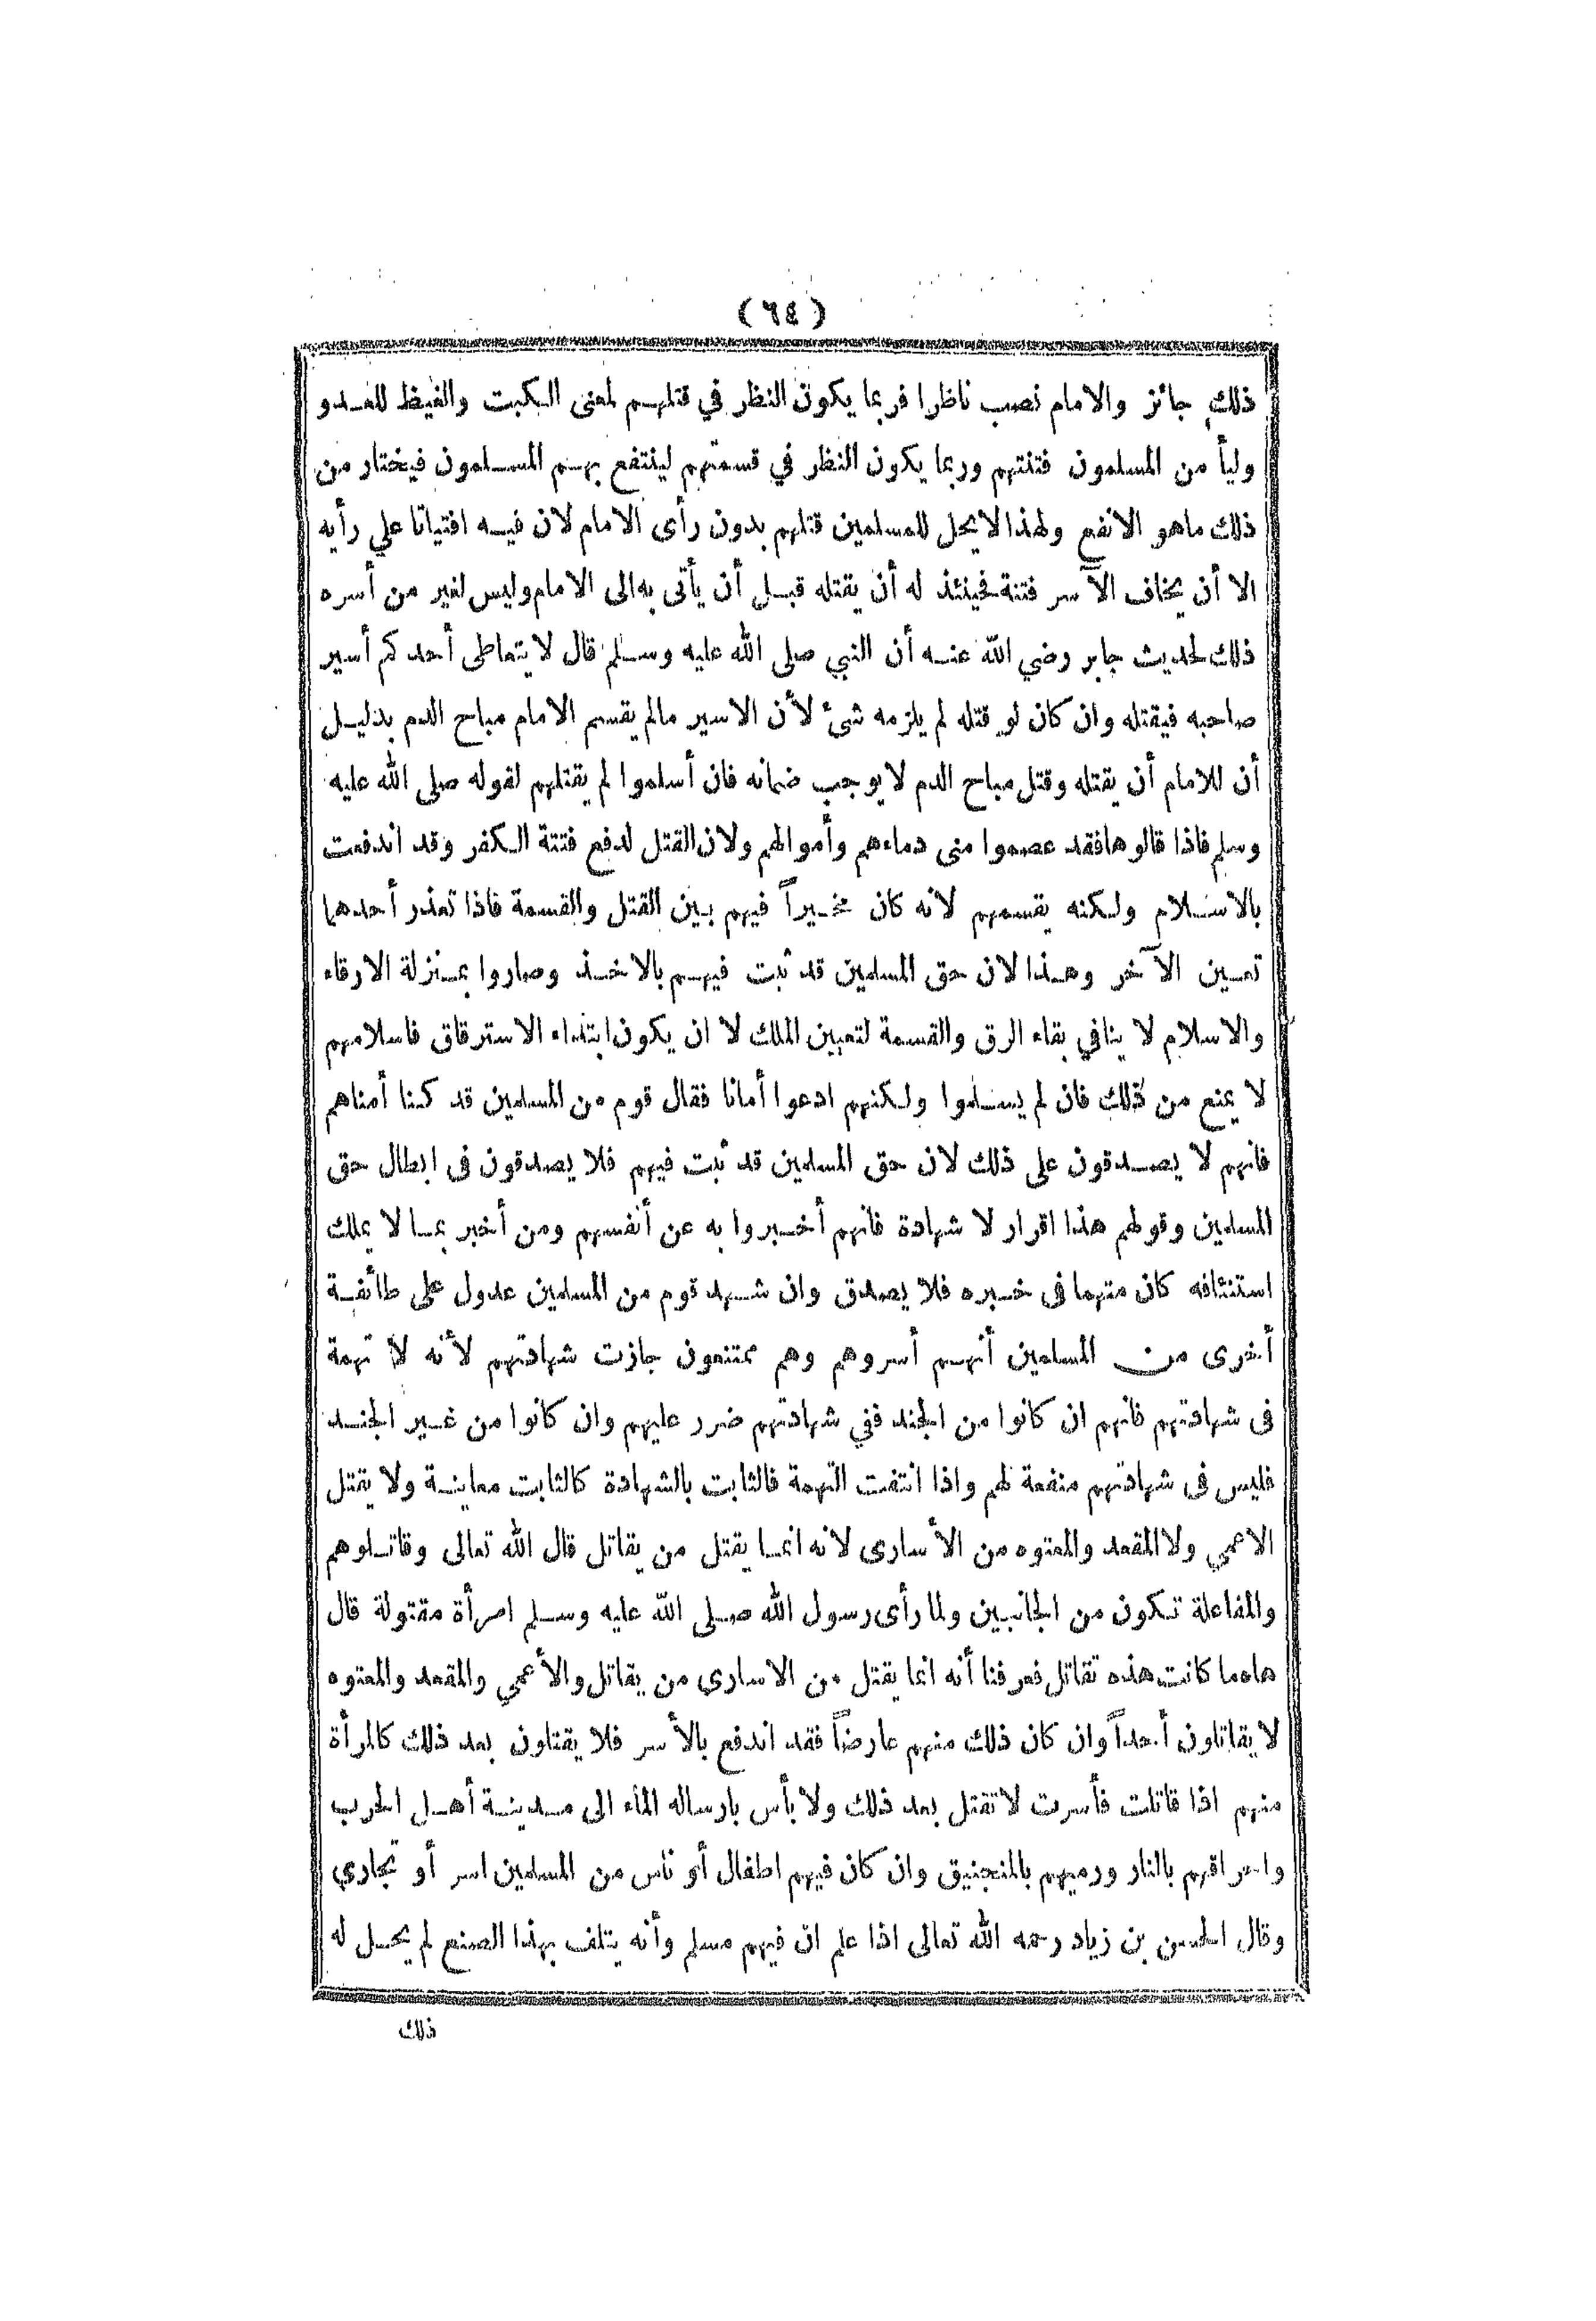 (٦٤)
ذلك جائز والامام نصب ناظرا فربما يكون النظر في قتلهم لمعنى الكبت والغيظ للعدو
وليأ من المسلمون فتنتهم وربما يكون النظر في قسمتهم لينتفع بهم المسلمون فيختار من
ذلك ماهو الانفع ولهذا لا يحل للمسلمين قتلهم بدون رأى الامام لان فيه افتياتا علي رأيه
الا أن يخاف الآسر فتنة فحينئذ له أن يقتله قبل أن يأتى به الى الامام وليس لغير من أسره
ذلك لحديث جابر رضي الله عنه أن النبي صلى الله عليه وسلم قال لا يتعاطى أحدكم أسير
صاحبه فيقتله وان كان لو قتله لم يلزمه شئ لأن الاسير مالم يقسم الامام مباح الدم بدليل
أن للامام أن يقتله وقتل مباح الدم لا يوجب ضمانه فان أسلموا لم يقتلهم لقوله صلى الله عليه
وسلم فاذا قالوها فقد عصموا منى دماءهم وأموالهم ولان القتل لدفع فتنة الكفر وقد اندفعت
بالاسلام ولكنه يقسمهم لانه كان مخيراً فيهم بين القتل والقسمة فاذا تعذر أحدهما
تعين الآخر وهذا لان حق المسلمين قد ثبت فيهم بالاخذ وصاروا بمنزلة الارقاء
والاسلام لا ينافي بقاء الرق والقسمة لتعيين الملك لا ان يكون ابتداء الاسترقاق فاسلامهم
لا يمنع من ذلك فان لم يسلموا ولكنهم ادعوا أمانا فقال قوم من المسلمين قد كنا أمناهم
فانهم لا يصدقون على ذلك لان حق المسلمين قد ثبت فيهم فلا يصدقون فى ابطال حق
المسلمين وقولهم هذا اقرار لا شهادة فانهم أخبروا به عن أنفسهم ومن أخبر بما لا يملك
استئنافه كان متهما فى خبره فلا يصدق وان شهد قوم من المسلمين عدول على طائفة
أخرى من المسلمين أنهم أسروهم وهم ممتنعون جازت شهادتهم لأنه لا تهمة
فى شهادتهم فانهم ان كانوا من الجند ففي شهادتهم ضرر عليهم وان كانوا من غير الجند
فليس فى شهادتهم منفعة لهم واذا انتفت التهمة فالثابت بالشهادة كالثابت معاينة ولا يقتل
الاعمي ولا المقعد والمعتوه من الأسارى لانه انما يقتل من يقاتل قال الله تعالى وقاتلوهم
والمفاعلة تكون من الجانبين ولما رأى رسول الله صلى الله عليه وسلم امرأة مقتولة قال
هاه ما كانت هذه تقاتل فعرفنا أنه انما يقتل من الاسارى من يقاتل والأعمي والمقعد والمعتوه
لا يقاتلون أحداً وان كان ذلك منهم عارضاً فقد اندفع بالأسر فلا يقتلون بعد ذلك كالمرأة
منهم اذا قاتلت فأسرت لا تقتل بعد ذلك ولا بأس بارساله الماء الى مدينة أهل الحرب
واحراقهم بالنار ورميهم بالمنجنيق وان كان فيهم اطفال أو ناس من المسلمين اسر أو تجاري
وقال الحسن بن زياد رحمه الله تعالى اذا علم ان فيهم مسلم وأنه يتلف بهذا الصنع لم يحل له
ذلك